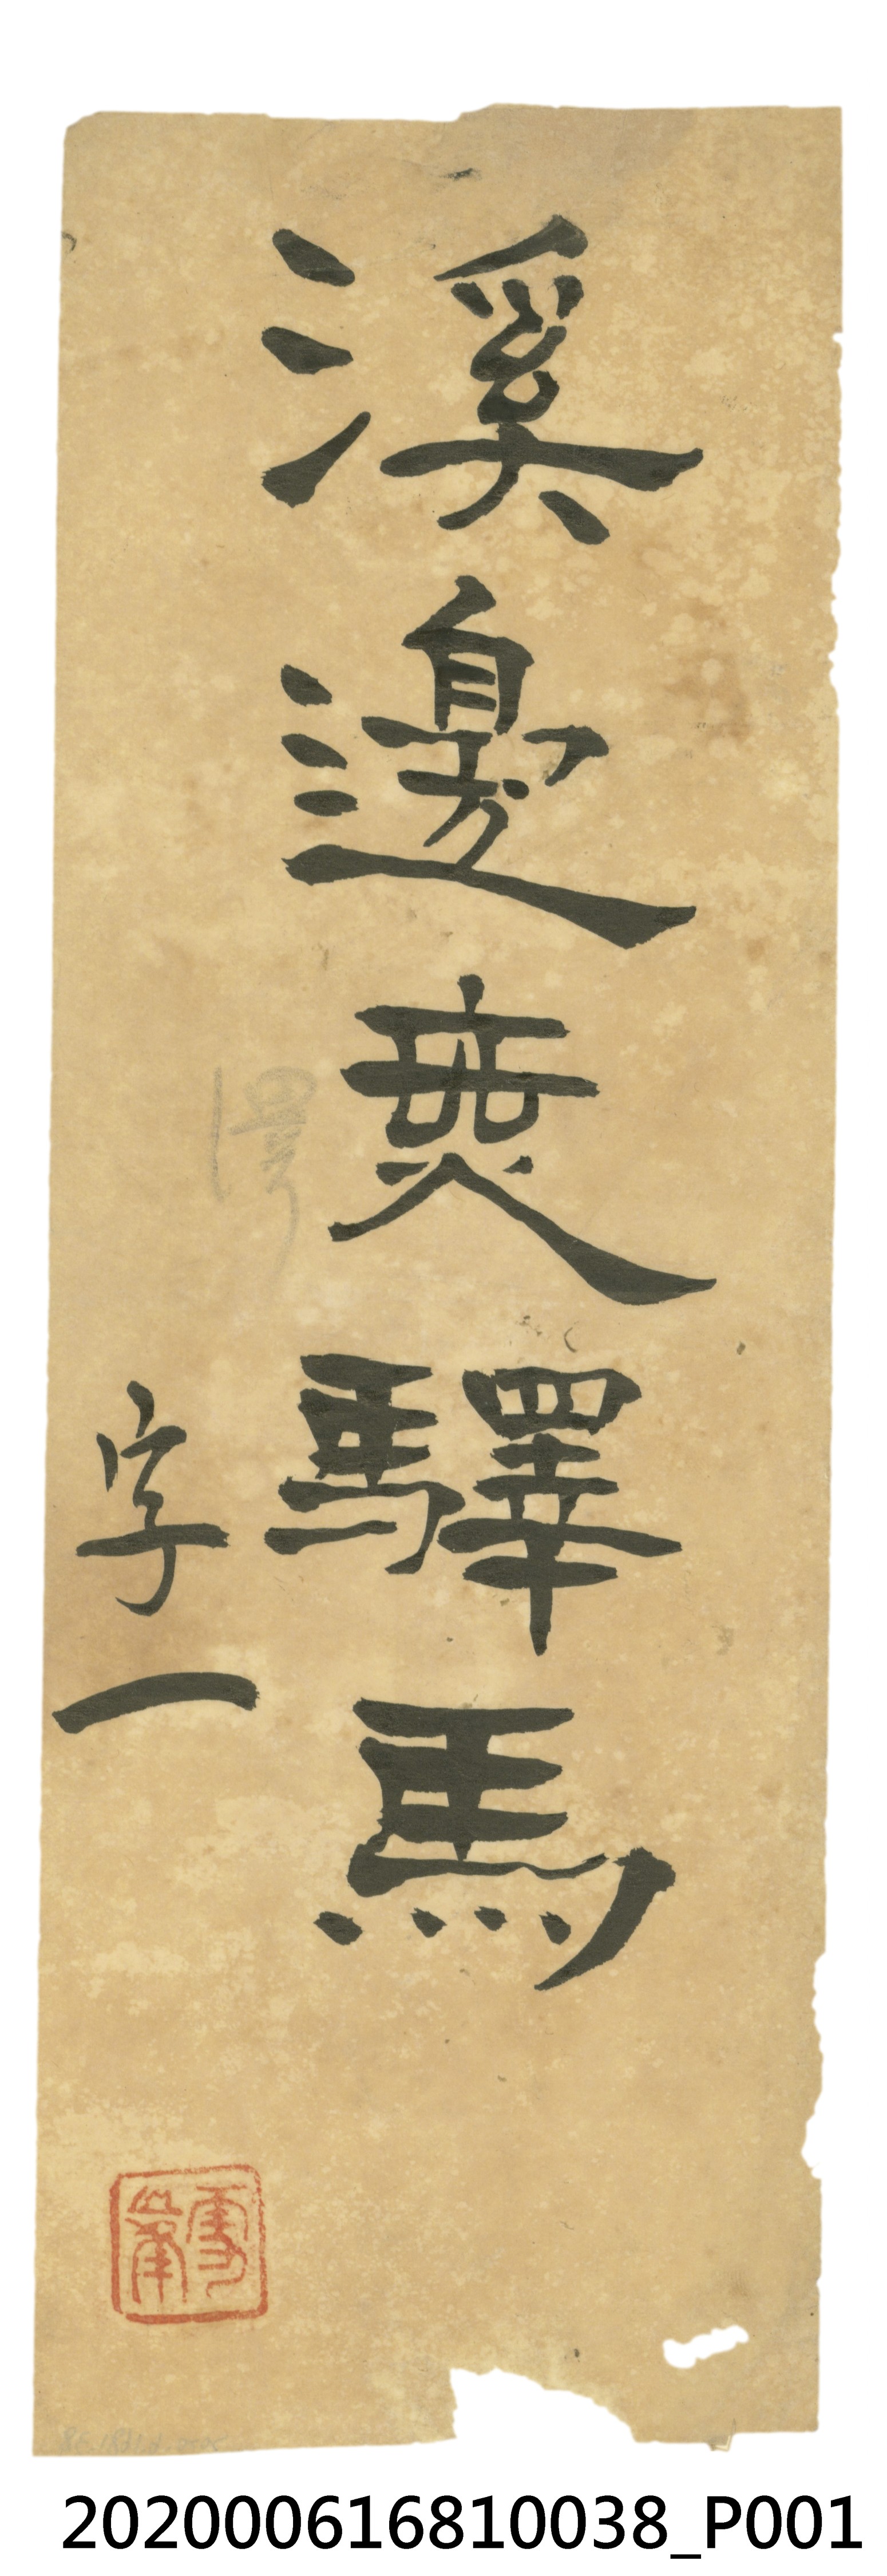 溪邊驛馬
字一
202000616810038_P001